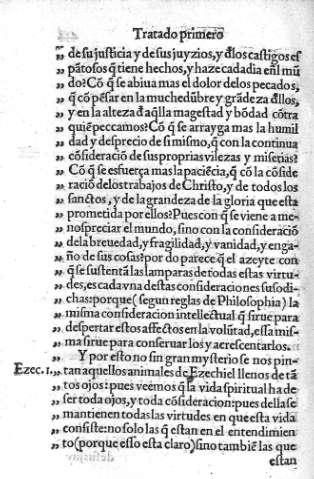 Tratado primero
„ de su justicia y de sus juyzios, y dľos castigos es
„ pãtosos q̃ tiene hechos, y haze cada dia enľ mũ
„ do? Cõ q̃ se abiua mas el dolor delos pecados,
„ q̃ cõ pẽsar en la muchedũbre y grãdeza dľlos,
„ y en la alteza d̃ aq̃lla magestad y bõdad cõtra
„ quiẽ peccamos? Cõ q̃ se arrayga mas la humil
„ dad y desprecio de si mismo, q̃ con la continua
„ cõsideració de sus proprias vilezas y miserias?
„ Cõ q̃ se esfuerça mas la paciẽcia, q̃ cõ la cõside
„ ració delos trabajos de Christo, y de todos los
„ sanctos, y de la grandeza de la gloria que esta
„ prometida por ellos? Pues con q̃ se viene a me-
„ nospreciar el mundo, sino con la consideració
„ dela breuedad, y fragilidad, y vanidad, y enga-
„ ño de sus cosas? por do parece q̃ el azeyte con
„ q̃ se sustentã las lamparas de todas estas virtu-
„ des, es cada vna destas consideraciones susodi-
„ chas: porque (segun reglas de Philosophia) la
„ misma consideracion intellectual q̃ sirue para
„ despertar estos affectos en la volũtad, essa mis-
„ ma sirue para conseruar los y acrescentarlos.
„ Y por esto no sin gran mysterio se nos pin-
Ezec. 1. „ tan aquellos animales de Ezechiel llenos de tã
„ tos ojos: pues veemos q̃ la vida spiritual ha de
„ ser toda ojos, y toda cõsideracion: pues della se
„ mantienen todas las virtudes en que esta vida
„ consiste: no solo las q̃ estan en el entendimien
„ to (porque esso esta claro) sino tambiẽ las que
estan